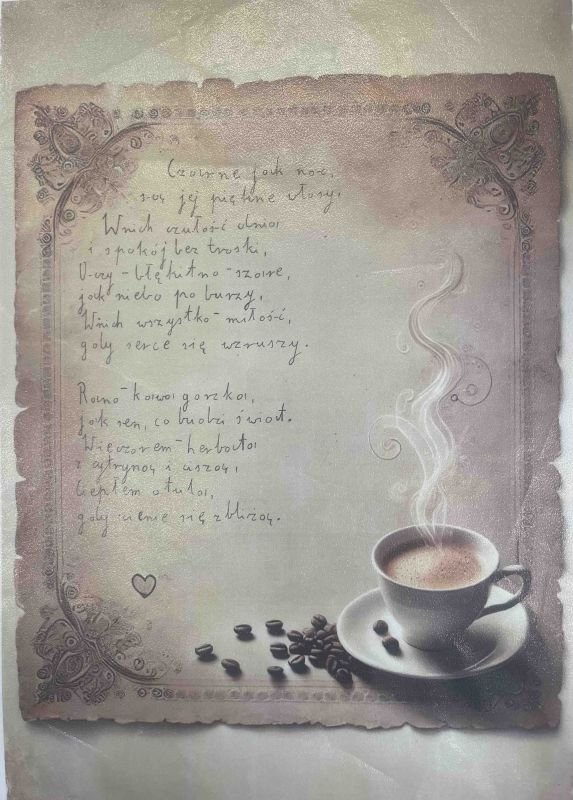 Czarne jak noc,
są jej piękne włosy.
W nich czułość dnia
i spokój bez troski,
Oczy - błękitno - szare,
jak niebo po burzy,
W nich wszystko - miłość,
gdy serce się wzruszy.
Rano - kawa gorzka,
jak sen, co budzi świat.
Wieczorem - herbata
z cytryną i ciszą,
Ciepłem otula,
gdy cienie się zbliżą.